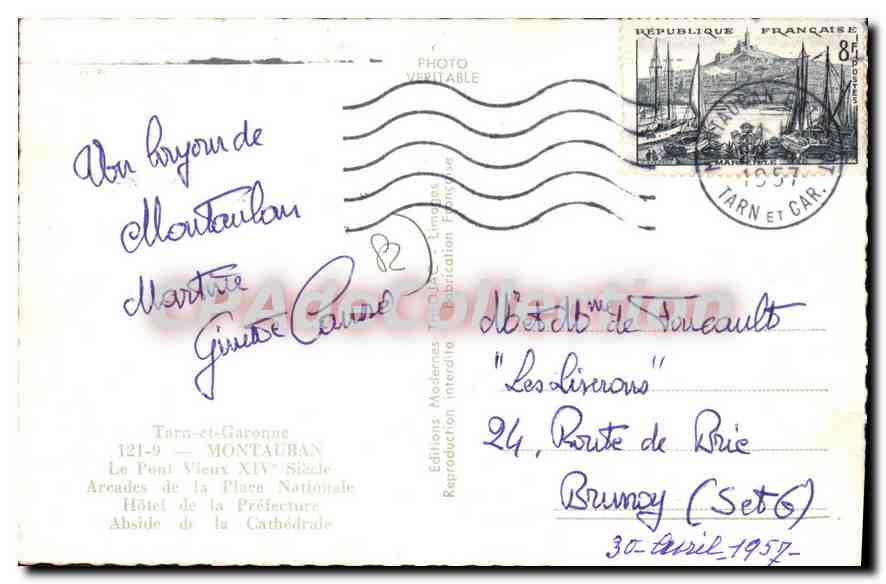 PHOTO
VERITABLE
RÉPUBLIQUE FRANÇAISE
8F
POSTES
MARSEILLE
MONTAUBAN
1957
TARN ET GAR.
Un bonjour de
Montauban
Martine
Ginette Causse
Editions Modernes - Limoges
Reproduction interdite Fabrication Française
CPAdeCollection
Mr et Mme de Foucault
"Les Liserons"
24, Route de Brie
Brunoy (S et O)
30 - Avril - 1957 -
Tarn-et-Garonne
121-9 — MONTAUBAN
Le Pont Vieux XIVe Siècle
Arcades de la Place Nationale
Hôtel de la Préfecture
Abside de la Cathédrale